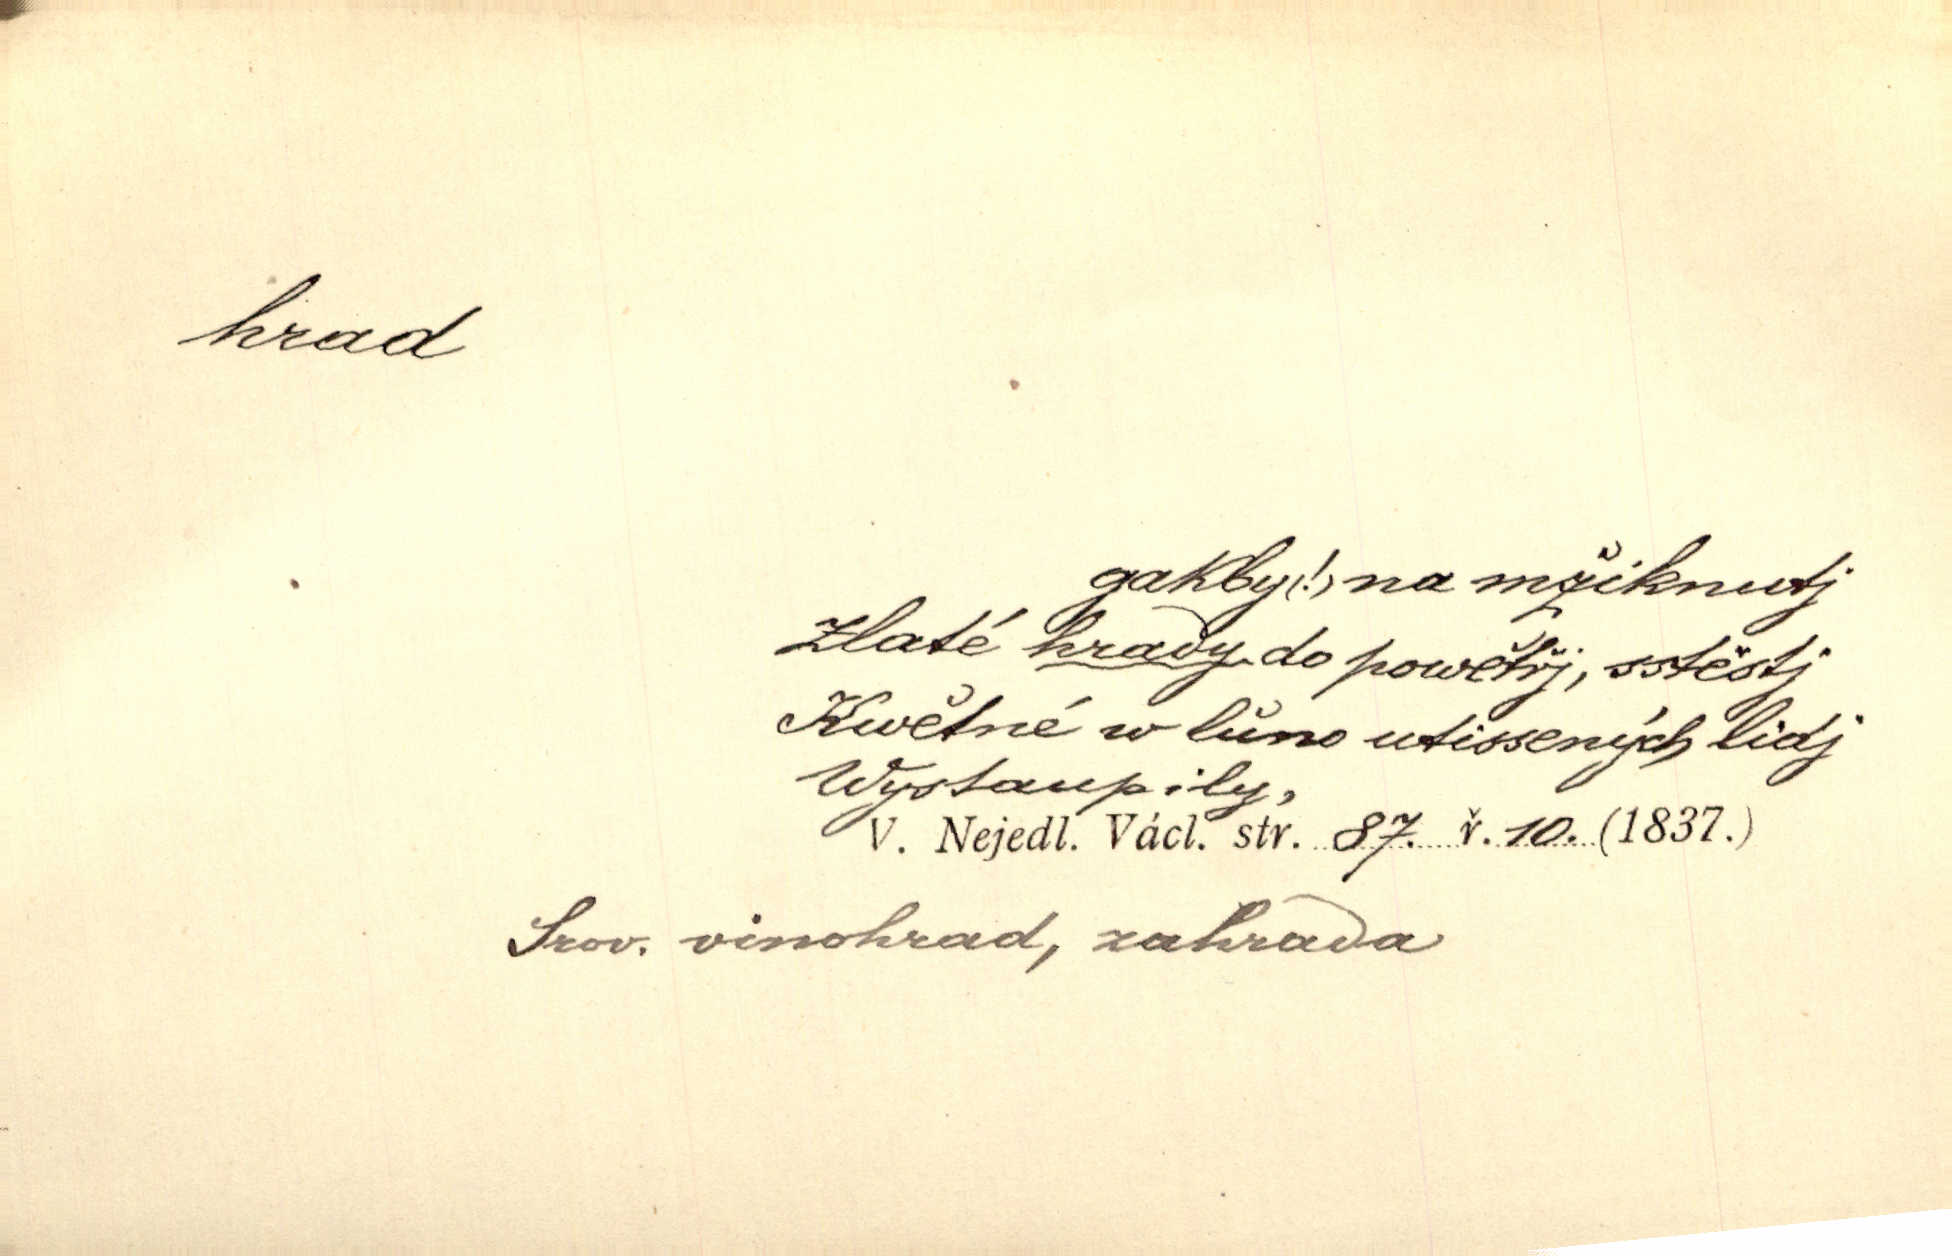 hrad
gakby(!) na mžiknutj
Zlaté hrady do powětřj, sstěstj
Kwětné w lůno utissených lidj
Wystaupily,
V. Nejedl. Václ. str. 87. ř. 10. (1837.)
Srov. vinohrad, zahrada